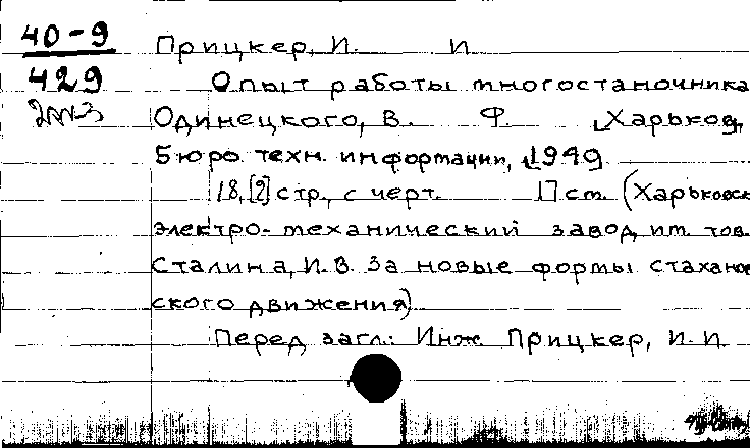 40-9
429
Прицкер, И. И.
Опыт работы многостаночника
Одинецкого, В. Ф. [Харьков],
Бюро техн. информации, [1949]
18, [2] стр., с черт. 17 см. (Харьковск
электро-механический завод им. тов.
Сталина, И.В. За новые формы стаханов
ского движения)
Перед загл.: Инж. Прицкер, И. И.